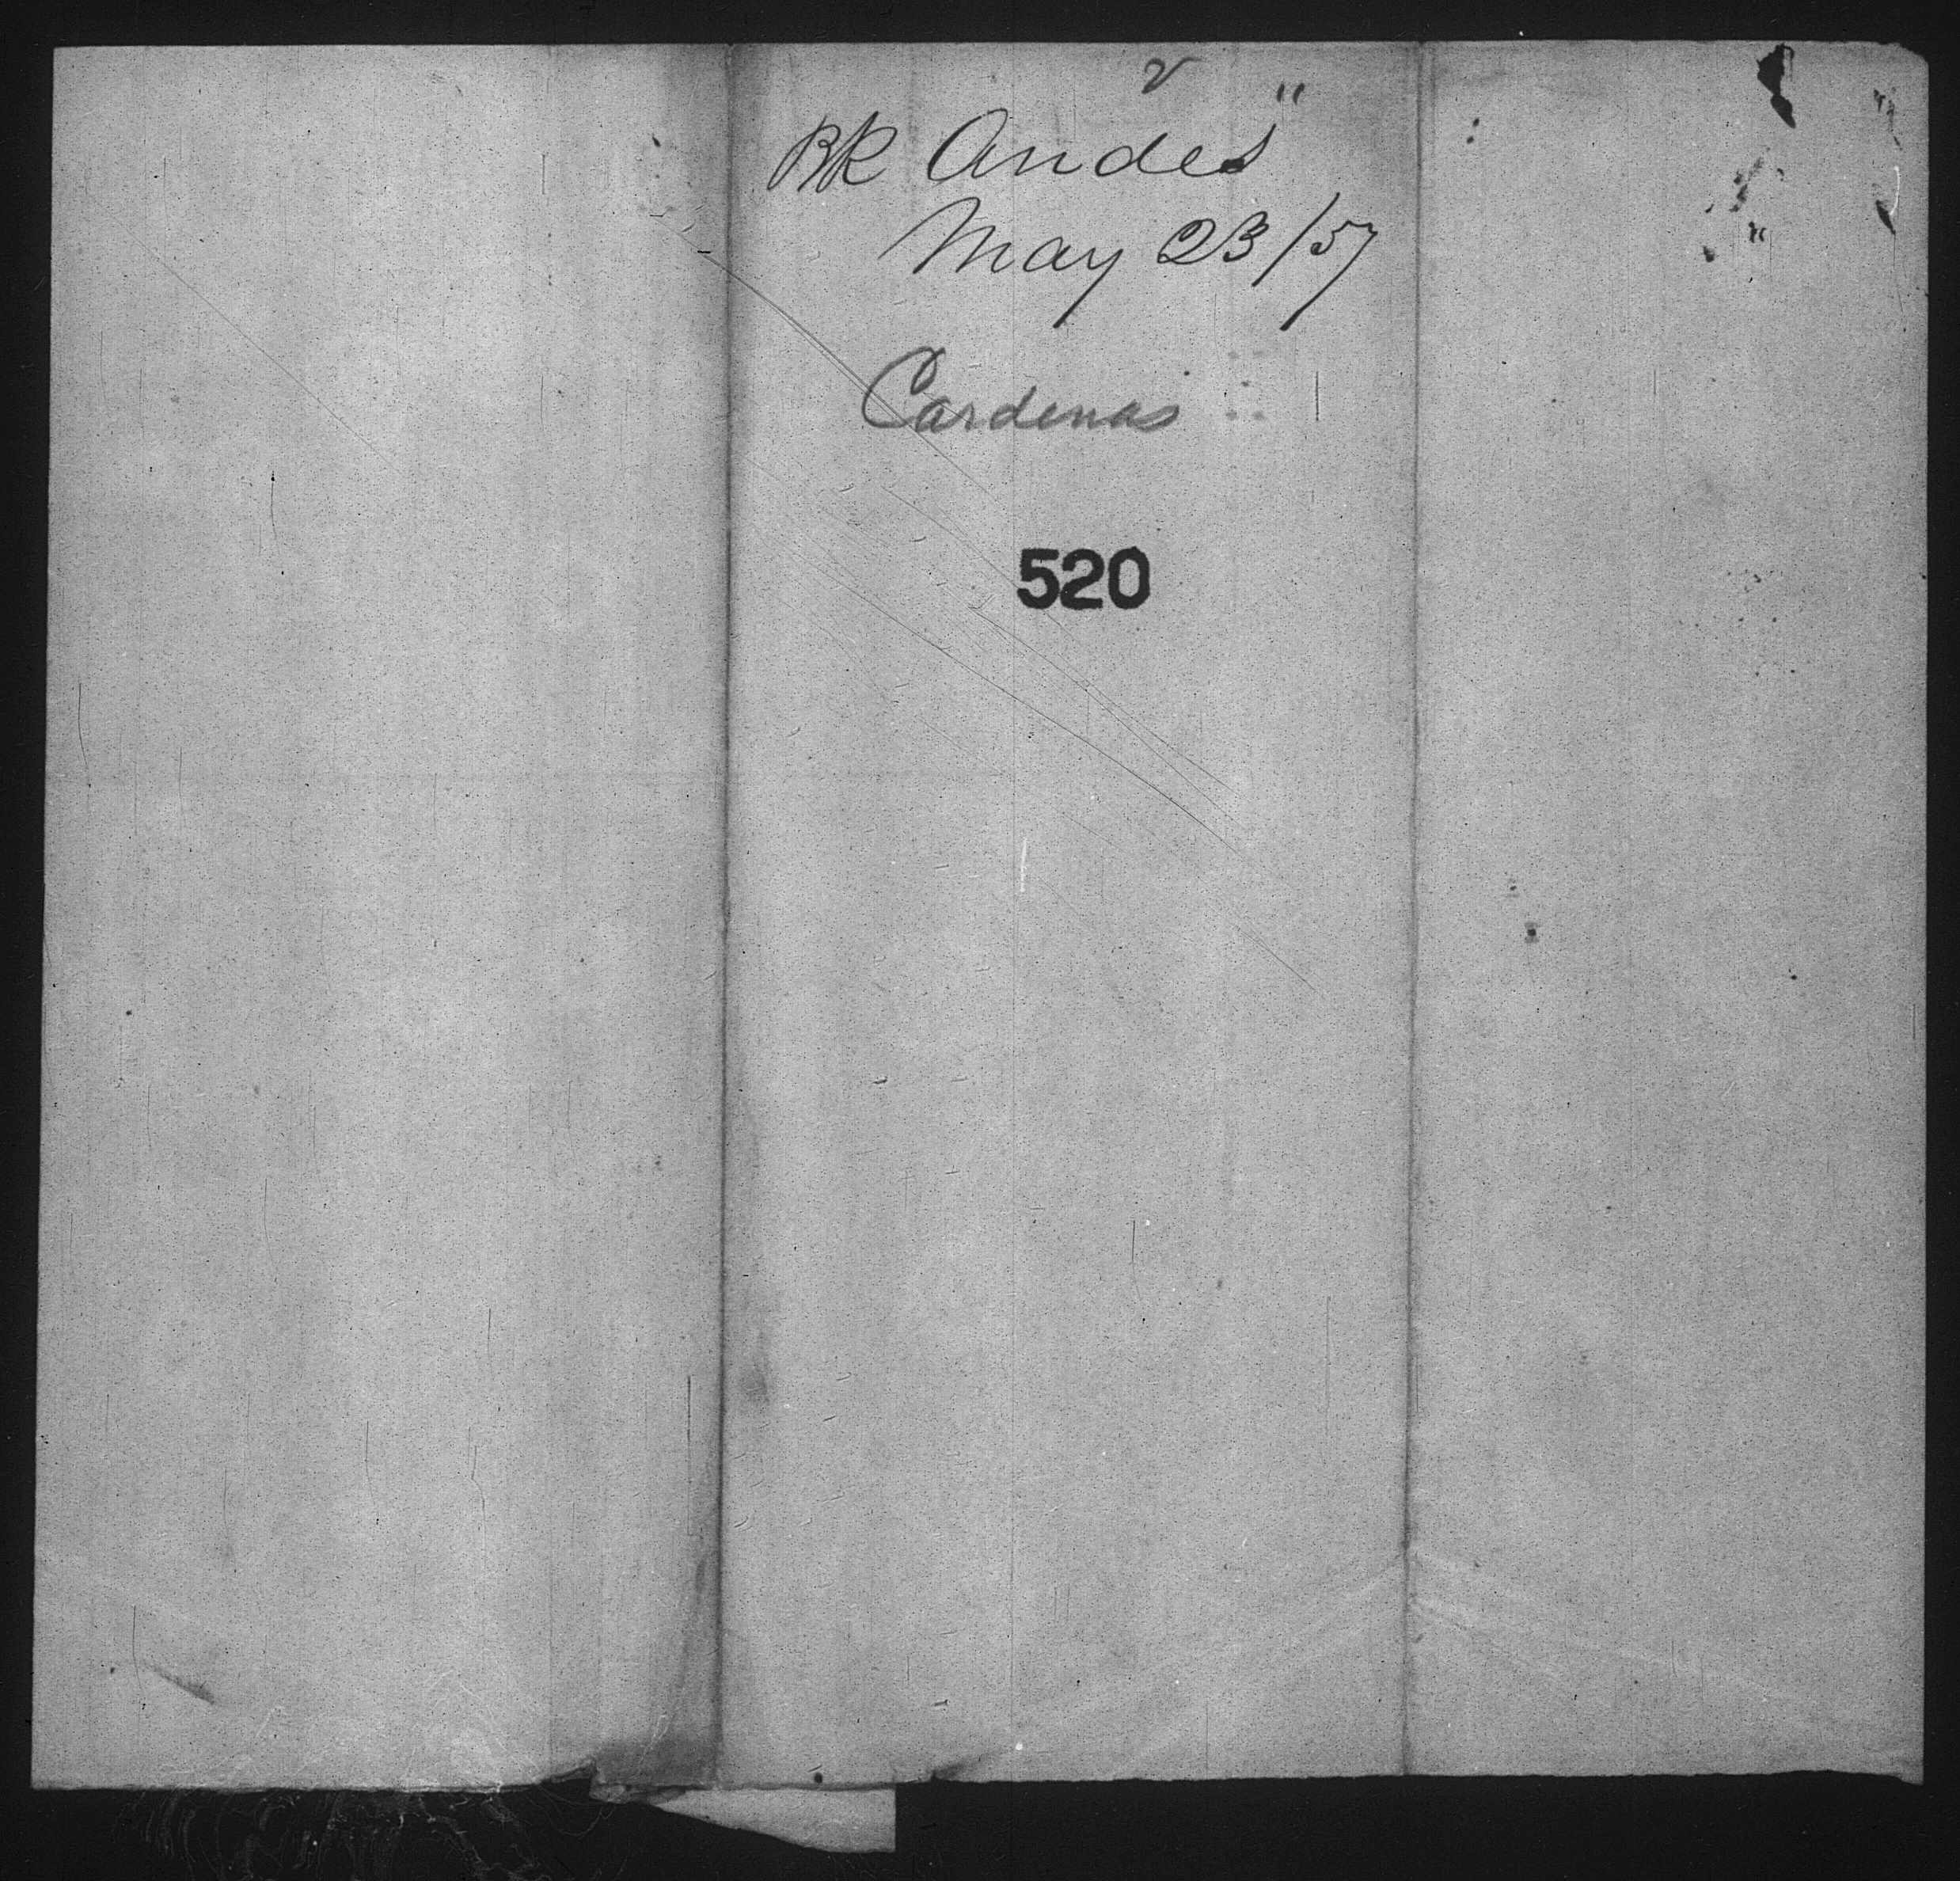 v
BK Andes"
May 23/57
Cardenas
520